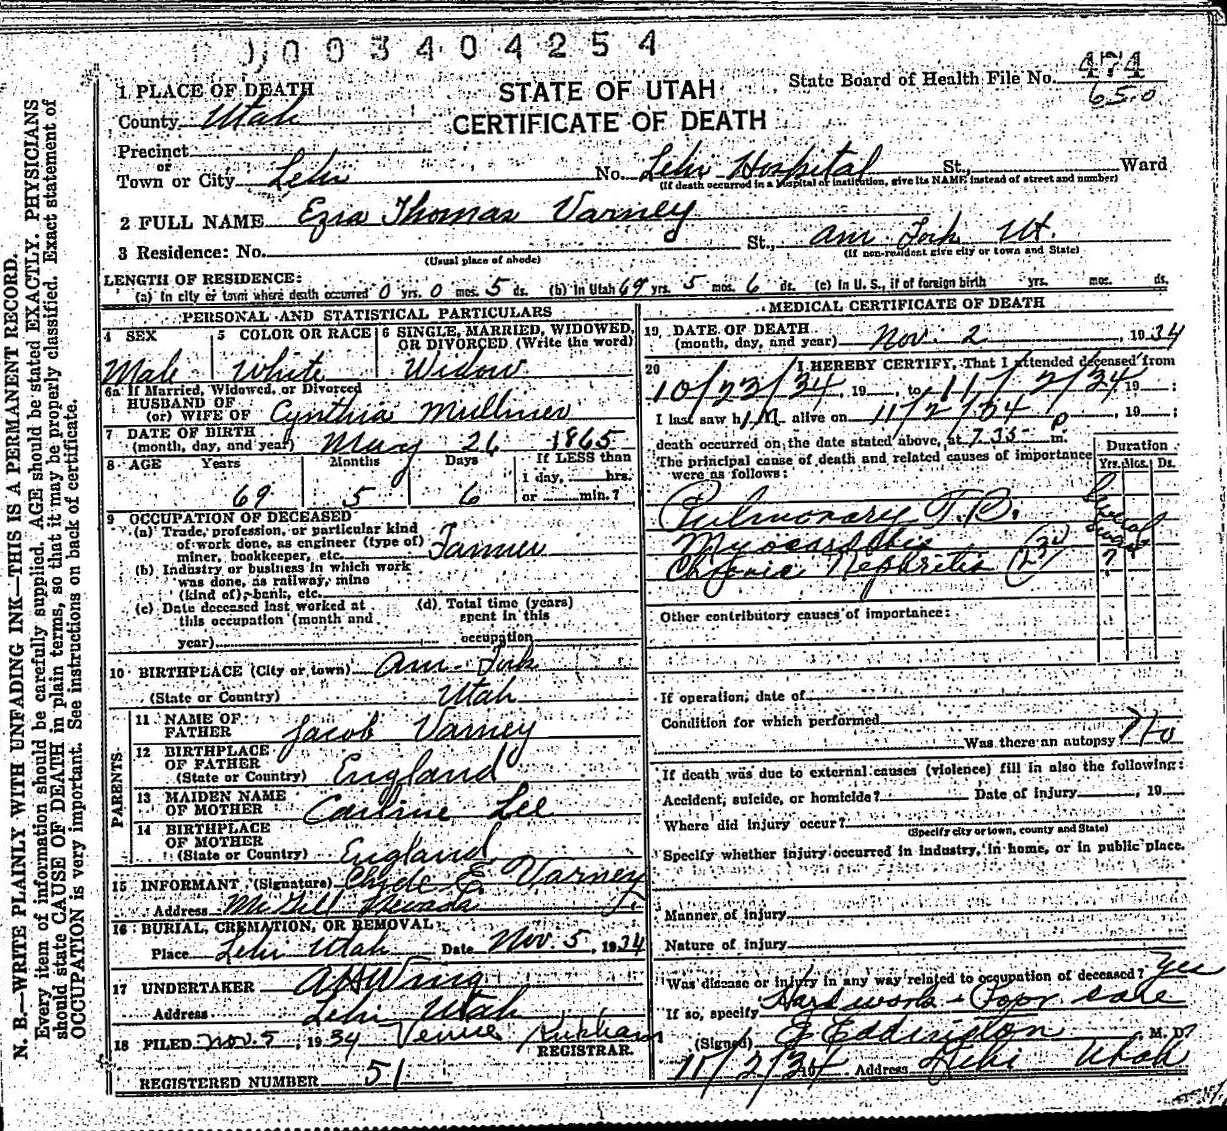 003404254
STATE OF UTAH
CERTIFICATE OF DEATH
State Board of Health File No. 474
65.0
1 PLACE OF DEATH
County Utah
Precinct
or
Town or City Lehi No. Lehi Hospital St., Ward
(If death occurred in a hospital or institution, give its NAME instead of street and number)
2 FULL NAME Ezra Thomas Varney
3 Residence: No. St., Am Fork Ut.
(Usual place of abode) (If non-resident give city or town and State)
LENGTH OF RESIDENCE:
(a) In city or town where death occurred 0 yrs. 0 mos. 5 ds. (b) In Utah 69 yrs. 5 mos. 6 ds. (c) In U. S., if of foreign birth yrs. mos. ds.
PERSONAL AND STATISTICAL PARTICULARS
4 SEX 5 COLOR OR RACE 6 SINGLE, MARRIED, WIDOWED, OR DIVORCED (Write the word)
Male White Widow
6a If Married, Widowed, or Divorced
HUSBAND OF
(or) WIFE OF Cynthia Mulliner
7 DATE OF BIRTH
(month, day, and year) May 26 1865
8 AGE Years Months Days If LESS than
1 day, hrs.
69 5 6 or min.?
9 OCCUPATION OF DECEASED
(a) Trade, profession, or particular kind
of work done, as engineer (type of)
miner, bookkeeper, etc. Farmer
(b) Industry or business in which work
was done, as railway, mine
(kind of), bank, etc.
(c) Date deceased last worked at (d) Total time (years)
this occupation (month and spent in this
year) occupation
10 BIRTHPLACE (City or town) Am. Fork
(State or Country) Utah
PARENTS
11 NAME OF
FATHER Jacob Varney
12 BIRTHPLACE
OF FATHER
(State or Country) England
13 MAIDEN NAME
OF MOTHER Caroline Lee
14 BIRTHPLACE
OF MOTHER
(State or Country) England
15 INFORMANT (Signature) Clyde E. Varney
Address McGill Nevada
16 BURIAL, CREMATION, OR REMOVAL
Place Lehi Utah Date Nov. 5, 1934
17 UNDERTAKER A H Wing
Address Lehi Utah
18 FILED Nov. 5, 1934 Kirkham
REGISTRAR.
REGISTERED NUMBER 51
MEDICAL CERTIFICATE OF DEATH
19 DATE OF DEATH
(month, day, and year) Nov. 2 1934
20 I HEREBY CERTIFY, That I attended deceased from
10/23/34, 19 , to 11/2/34 19 :
I last saw him alive on 11/2/34, 19 ;
death occurred on the date stated above, at 7.35 P m.
The principal cause of death and related causes of importance
were as follows:
Duration
Yrs. Mos. Ds.
Pulmonary T.B.
Myocarditis
Chronic Nephritis ?
Other contributory causes of importance:
If operation, date of
Condition for which performed
Was there an autopsy? No
If death was due to external causes (violence) fill in also the following:
Accident, suicide, or homicide? Date of injury , 19
Where did injury occur?
(Specify city or town, county and State)
Specify whether injury occurred in industry, in home, or in public place.
Manner of injury
Nature of injury
Was disease or injury in any way related to occupation of deceased? Yes
If so, specify Hard work - Poor care
(Signed) E Eddington M. D.
11/2/34 19 Address Lehi Utah
N. B.—WRITE PLAINLY WITH UNFADING INK—THIS IS A PERMANENT RECORD.
Every item of information should be carefully supplied. AGE should be stated EXACTLY. PHYSICIANS
should state CAUSE OF DEATH in plain terms, so that it may be properly classified. Exact statement of
OCCUPATION is very important. See instructions on back of certificate.